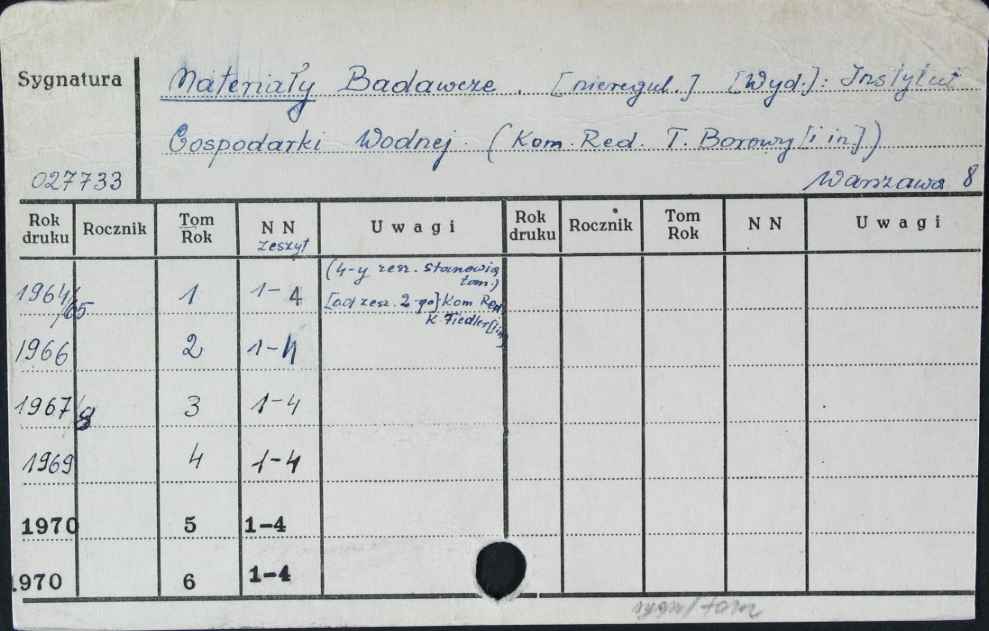 Sygnatura
Materiały Badawcze. [nieregul.] [Wyd.]: Instytut
Gospodarki Wodnej. (Kom. Red. T. Borowy [i in.])
027733
Warszawa 8
Rok druku Rocznik Tom Rok N N zeszyt Uwagi Rok druku Rocznik Tom Rok N N Uwagi
(4-y zesz. stanowią
tom.)
1964/65 1 1-4 [od zesz. 2-go] Kom Red.
K Fiedler [i in]
1966 2 1-4
1967/8 3 1-4
1969 4 1-4
1970 5 1-4
1970 6 1-4
sygn/tom